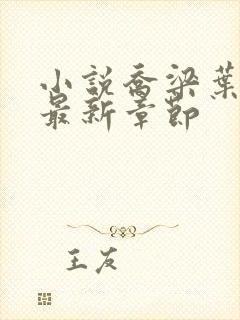 小説喬梁葉
最新章節
王友